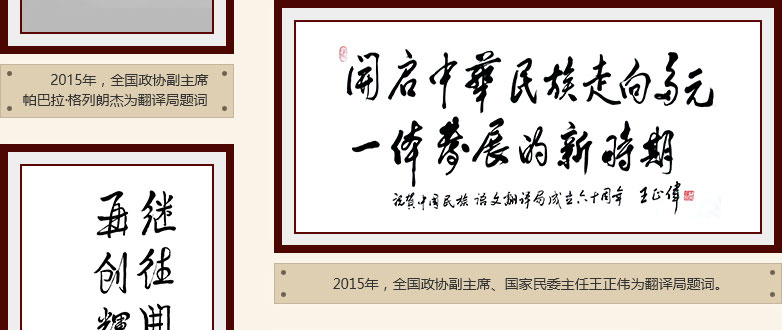 2015年，全国政协副主席
帕巴拉·格列朗杰为翻译局题词
继往開
再创輝
開启中華民族走向多元
一体發展的新時期
祝賀中國民族语文翻译局成立六十周年 王正偉
2015年，全国政协副主席、国家民委主任王正伟为翻译局题词。